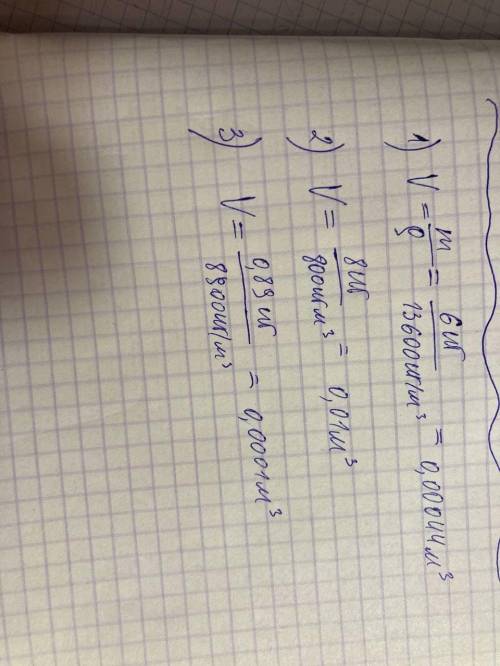 1) V = m/ρ = 6 кг / 13600 кг/м³ = 0,00044 м³
2) V = 8 кг / 800 кг м³ = 0,01 м³
3) V = 0,89 кг / 8900 кг/м³ = 0,0001 м³